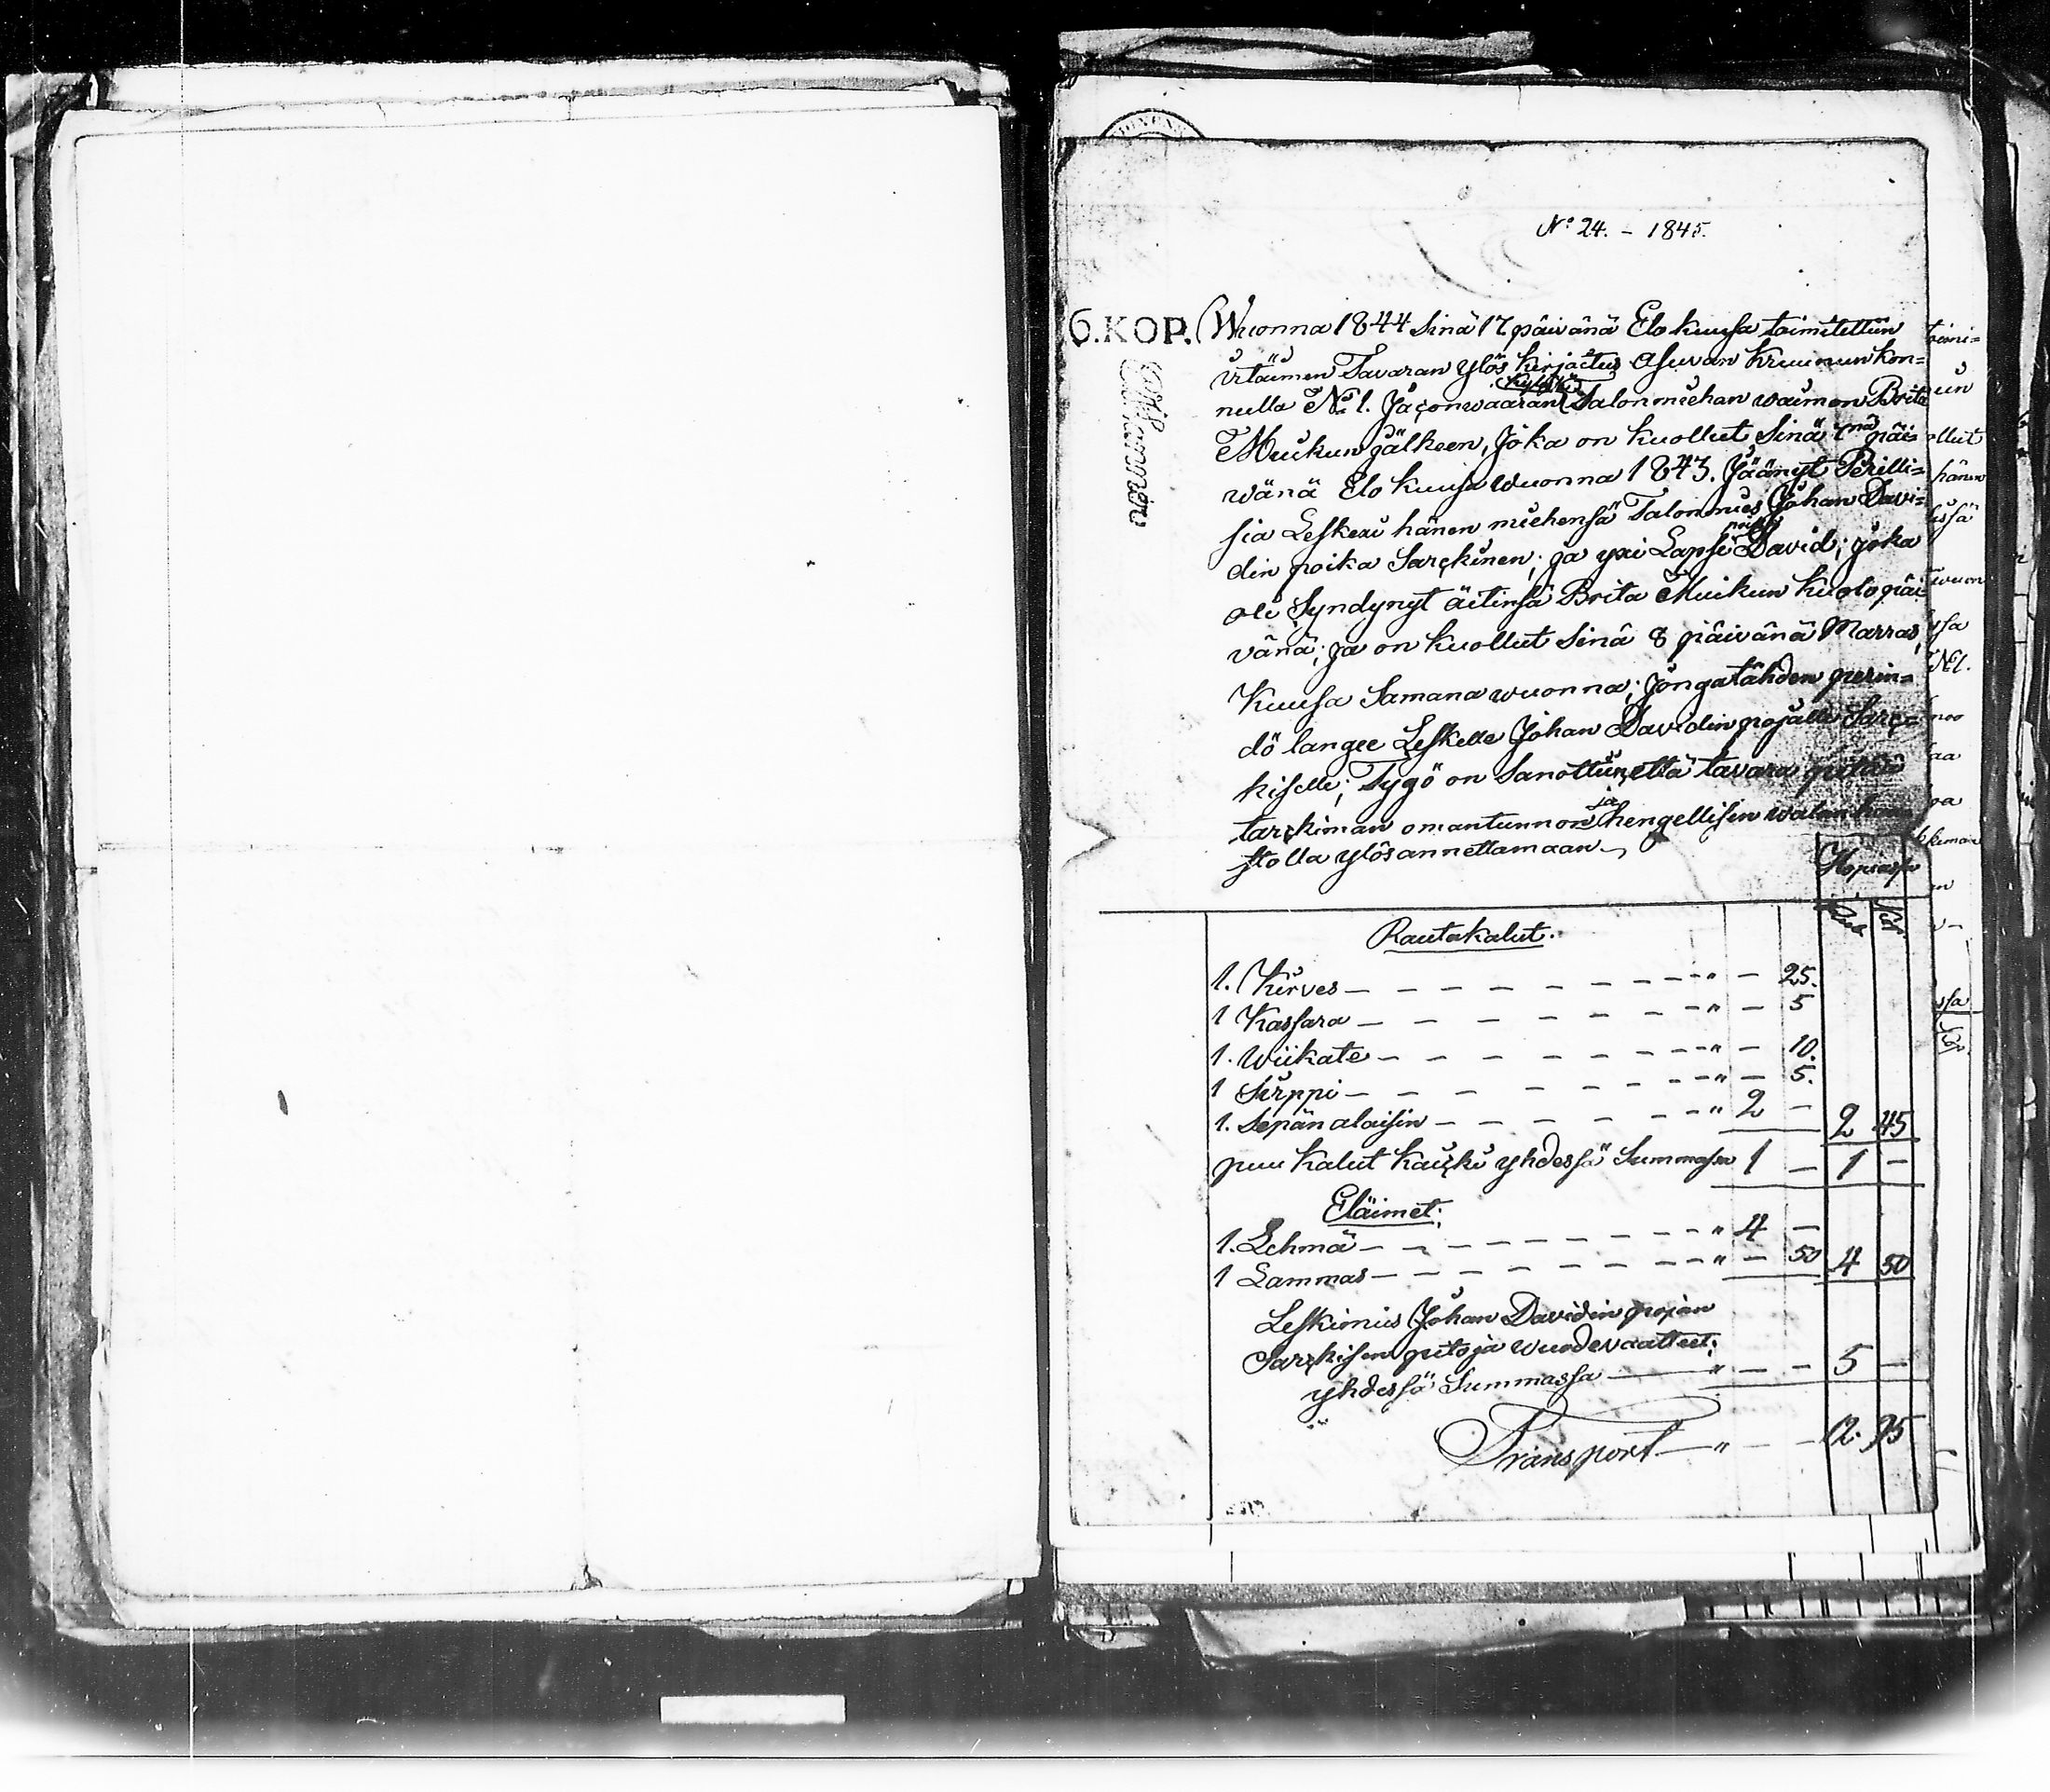 Nº 24. – 1845.
6.KOP.
Wuonna 1844 Sinä 17 päivänä Elo kuusa toimitettiin
Irtaimen Tavaran Ylös kirjoitus Asuvan Kruunun kon=
nulla Nº 1. Jaçonwaaran Talon miehan waimon Brita
Muikun jälkeen, Joka on kuollut Sinä 7nä päi=
wänä Elo kuusa wuonna 1843. Jäänyt Perilli=
sia Leskexi hänen miehensä Talonmies Johan Davi=
din poika Sarçkinen; ja yxi Lapsi poika David; joka
oli Syndynyt äitinsä Brita Muikun kuolo päi
vänä; ja on kuollut Sinä 8 päivänä Marras
Kuusa Samana wuonna; Jonga tähden perin=
dö langee Leskelle Johan Davidin pojalle Sarç=
kiselle; Tygö on Sanottu, että tavara pitää
tarçkiman omantunnon ja hengellisen walan
stolla ylösannettamaan.
Hopeassa
Rub Kop
Rautakalut.
1. Kirves – – – " – 25.
1 Kassara – – – " – 5
1. Wiikate – – – " – 10.
1 Sirppi – – – " – 5.
1. Sepän alaisin – – – " 2 – 2 45
puu kalut kaiçki yhdessä Summassa 1 – 1 –
Eläimet;
1. Lehmä – – – " 4 –
1 Lammas – – – " – 50 4 50
Leskimies Johan Davidin pojan
Sarçkisen pito ja wuodevaatteet;
yhdessä Summassa – " – – 5 –
Transport – " – – 12. 95